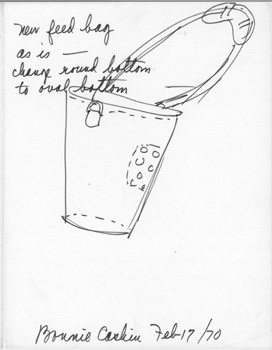 new feed bag
as is —
change round bottom
to oval bottom —
Bonnie Cashin Feb 17/70